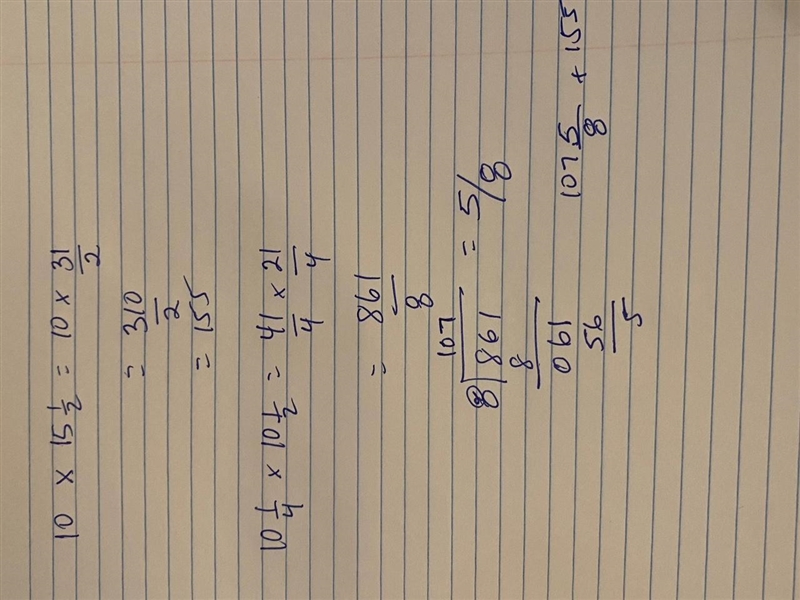 10 × 15 1/2 = 10 × 31/2
= 310/2
= 155
10 1/4 × 10 1/2 = 41/4 × 21/4
= 861/8
107
8 | 861 = 5/8
8
061
56
5
107 5/8 + 155